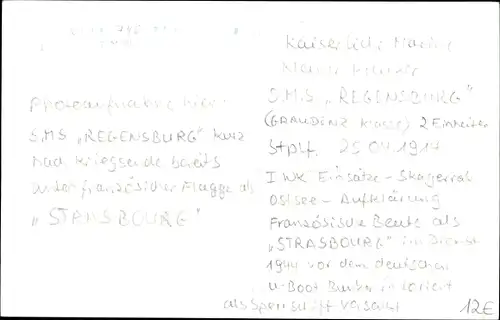 Photoaufnahme hier:
S.M.S „REGENSBURG" kurz
nach Kriegsende bereits
unter französischer Flagge als
„STRASBOURG"
Kaiserliche Marine
Kleiner Kreuzer
S.M.S „REGENSBURG"
(GRAUDENZ Klasse) 2 Einheiten
Stplf. 25 04. 1914
I WK Einsätze - Skagerrak
Ostsee - Aufklärung
Französische Beute als
„STRASBOURG" im Dienst
1944 vor dem deutschen
U-Boot Bunker in Lorient
als Sperrschiff versenkt
12E